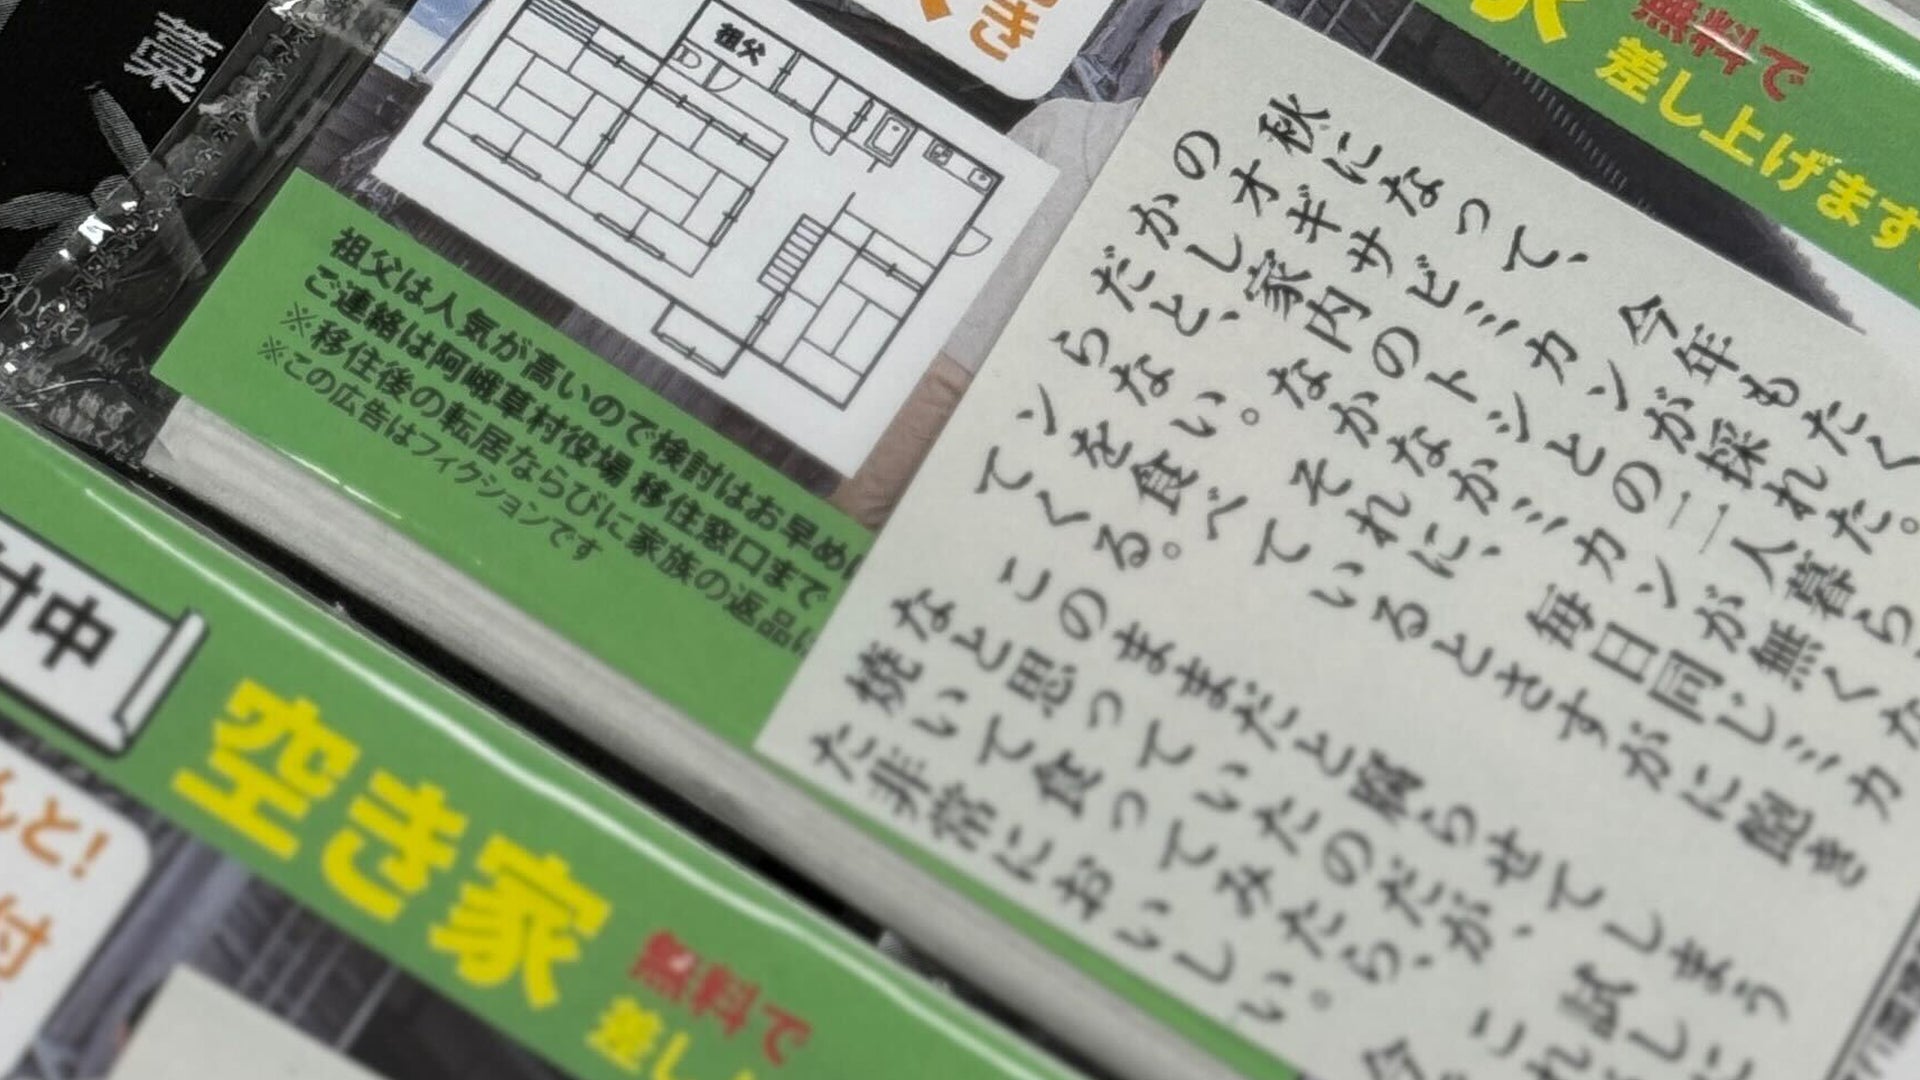 祖父
祖父は人気が高いので検討はお早め
ご連絡は阿峨草村役場 移住窓口まで
※移住後の転居ならびに家族の返品は
※この広告はフィクションです
無料で
差し上げます
秋になって、今年もたく
のオギサビミカンが採れた。
かし家内のトシとの二人暮ら
だと、なかなかミカンが無くな
らない。それに、毎日同じミカ
ンを食べているとさすがに飽き
てくる。
このままだと腐らせてしまう
なと思っていたのだが、試しに
焼いて食ってみたら、これ
た非常においしい。今
付中
んと!
付
空き家
無料で
差し